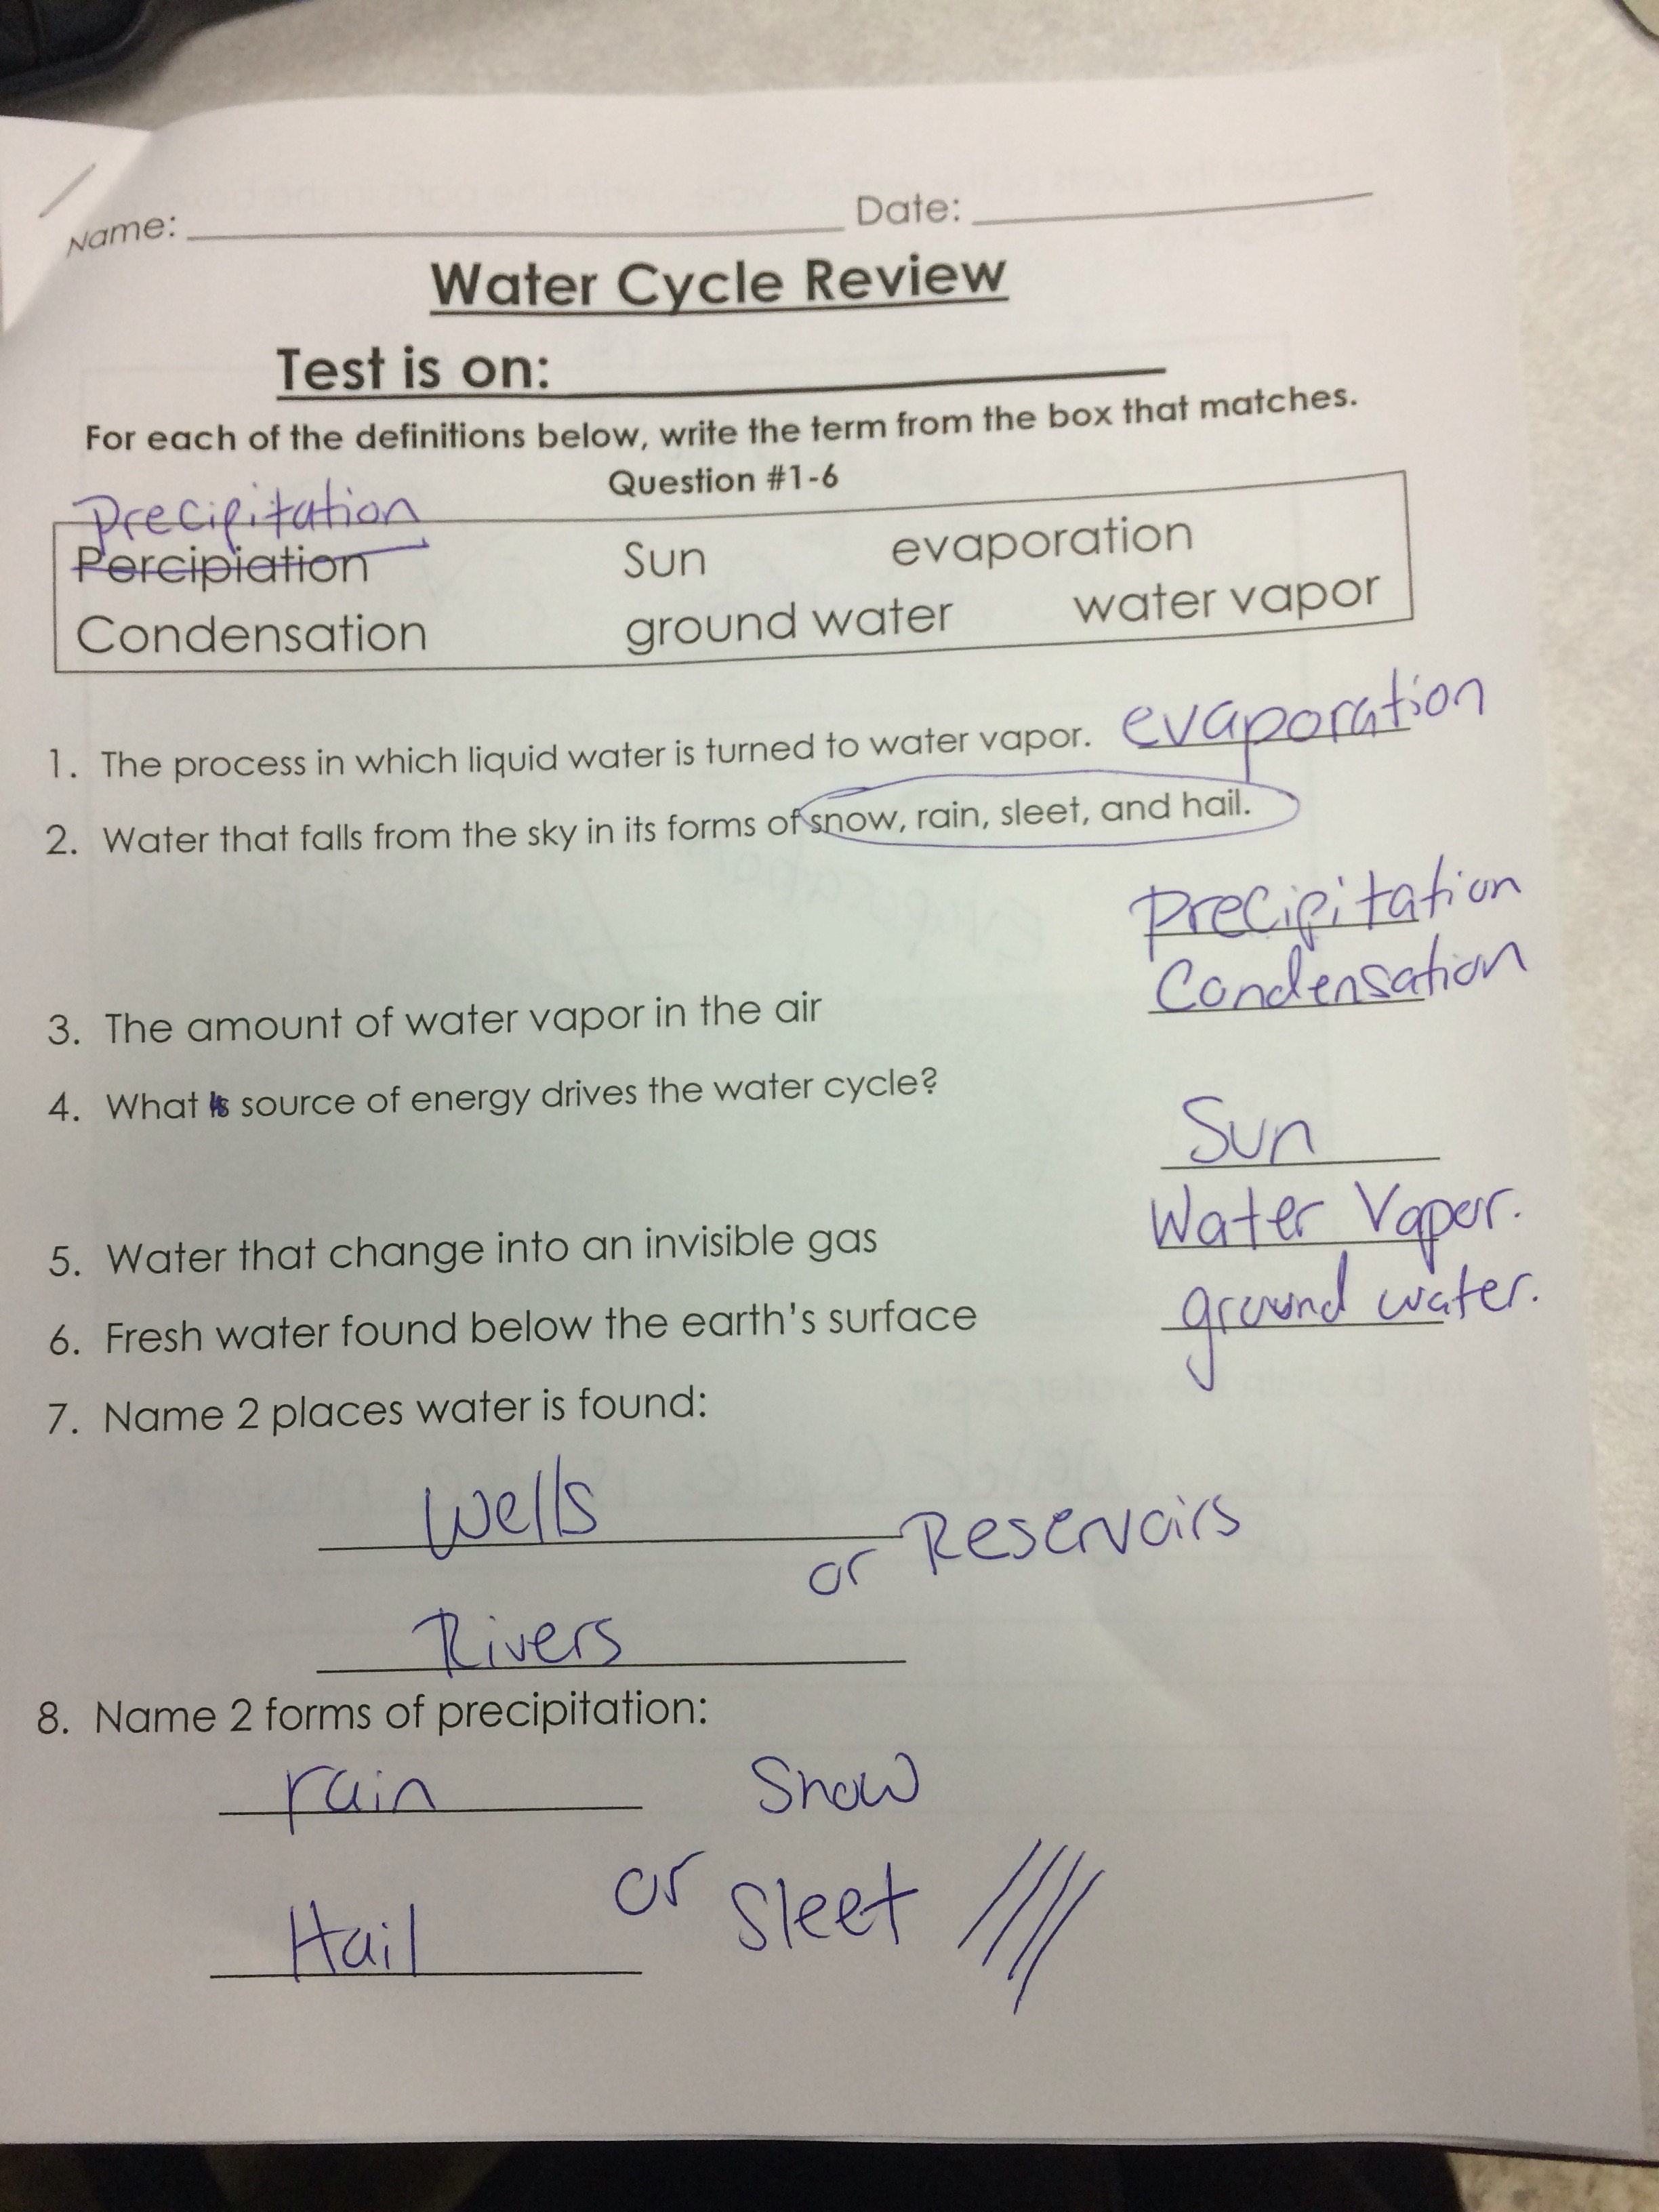 Name: Date:
Water Cycle Review
Test is on:
For each of the definitions below, write the term from the box that matches.
Question #1-6
Precipitation
Percipiation Sun evaporation
Condensation ground water water vapor
1. The process in which liquid water is turned to water vapor. evaporation
2. Water that falls from the sky in its forms of snow, rain, sleet, and hail.
Precipitation
3. The amount of water vapor in the air Condensation
4. What is source of energy drives the water cycle?
Sun
5. Water that change into an invisible gas Water Vapor.
6. Fresh water found below the earth's surface ground water.
7. Name 2 places water is found:
Wells
or Reservoirs
Rivers
8. Name 2 forms of precipitation:
rain Snow
or Sleet
Hail